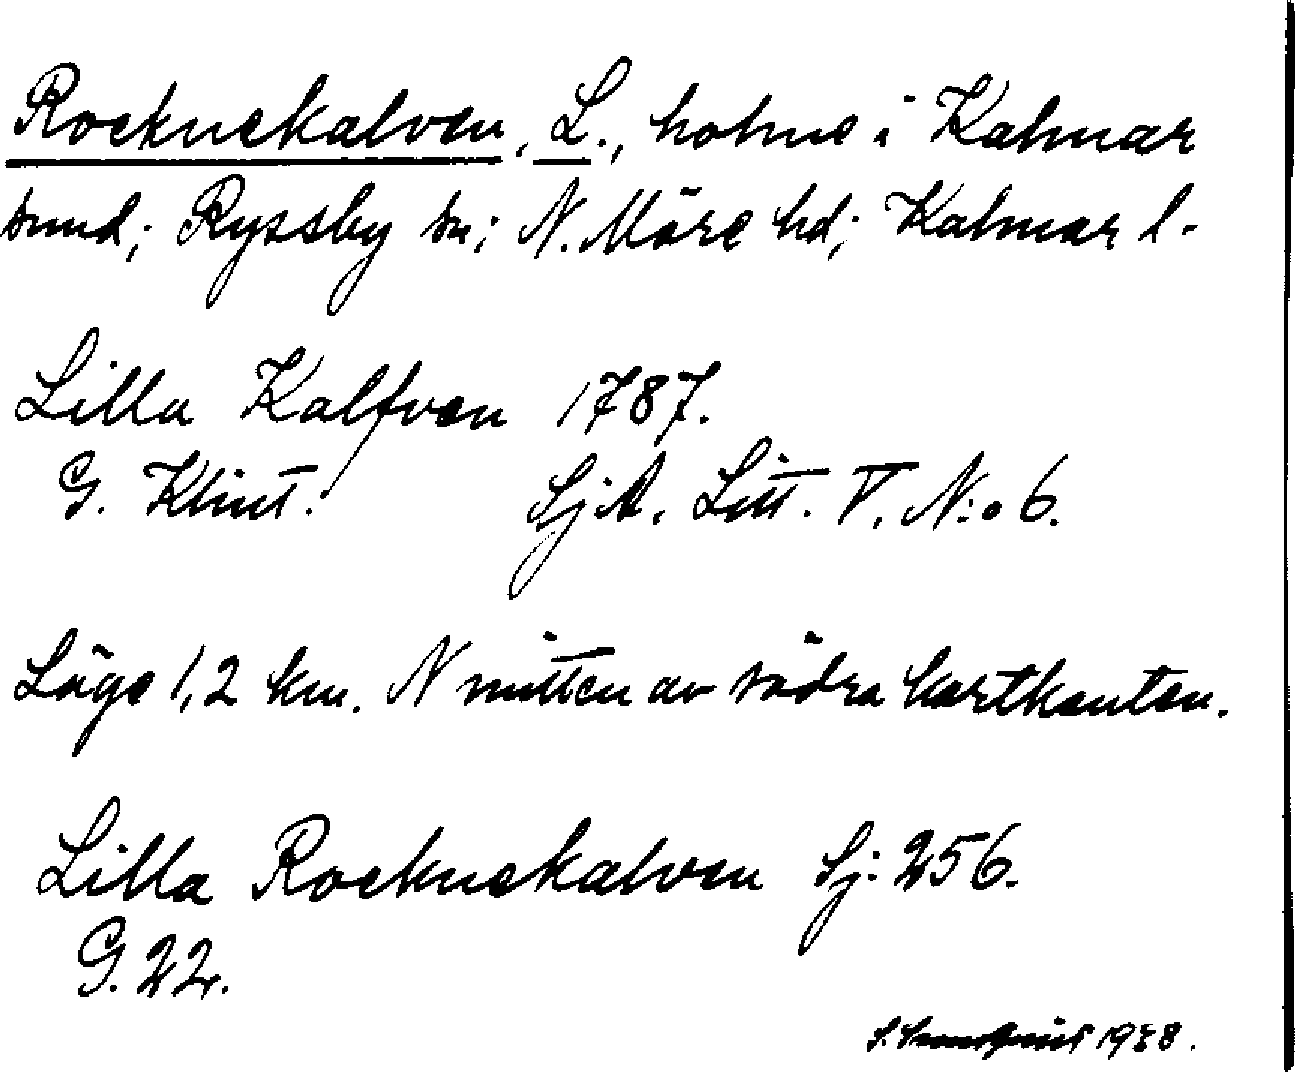 Rocknekalven, L., holme i Kalmar
sund; Ryssby sn; N. Möre hd; Kalmar l.
Lilla Kalfven 1787.
G. Klint. SjA. Litt. V. N:o 6.
Läge 1,2 km. N mitten av södra kartkanten.
Lilla Rocknekalven Sj: 256.
G. 22.
1938.